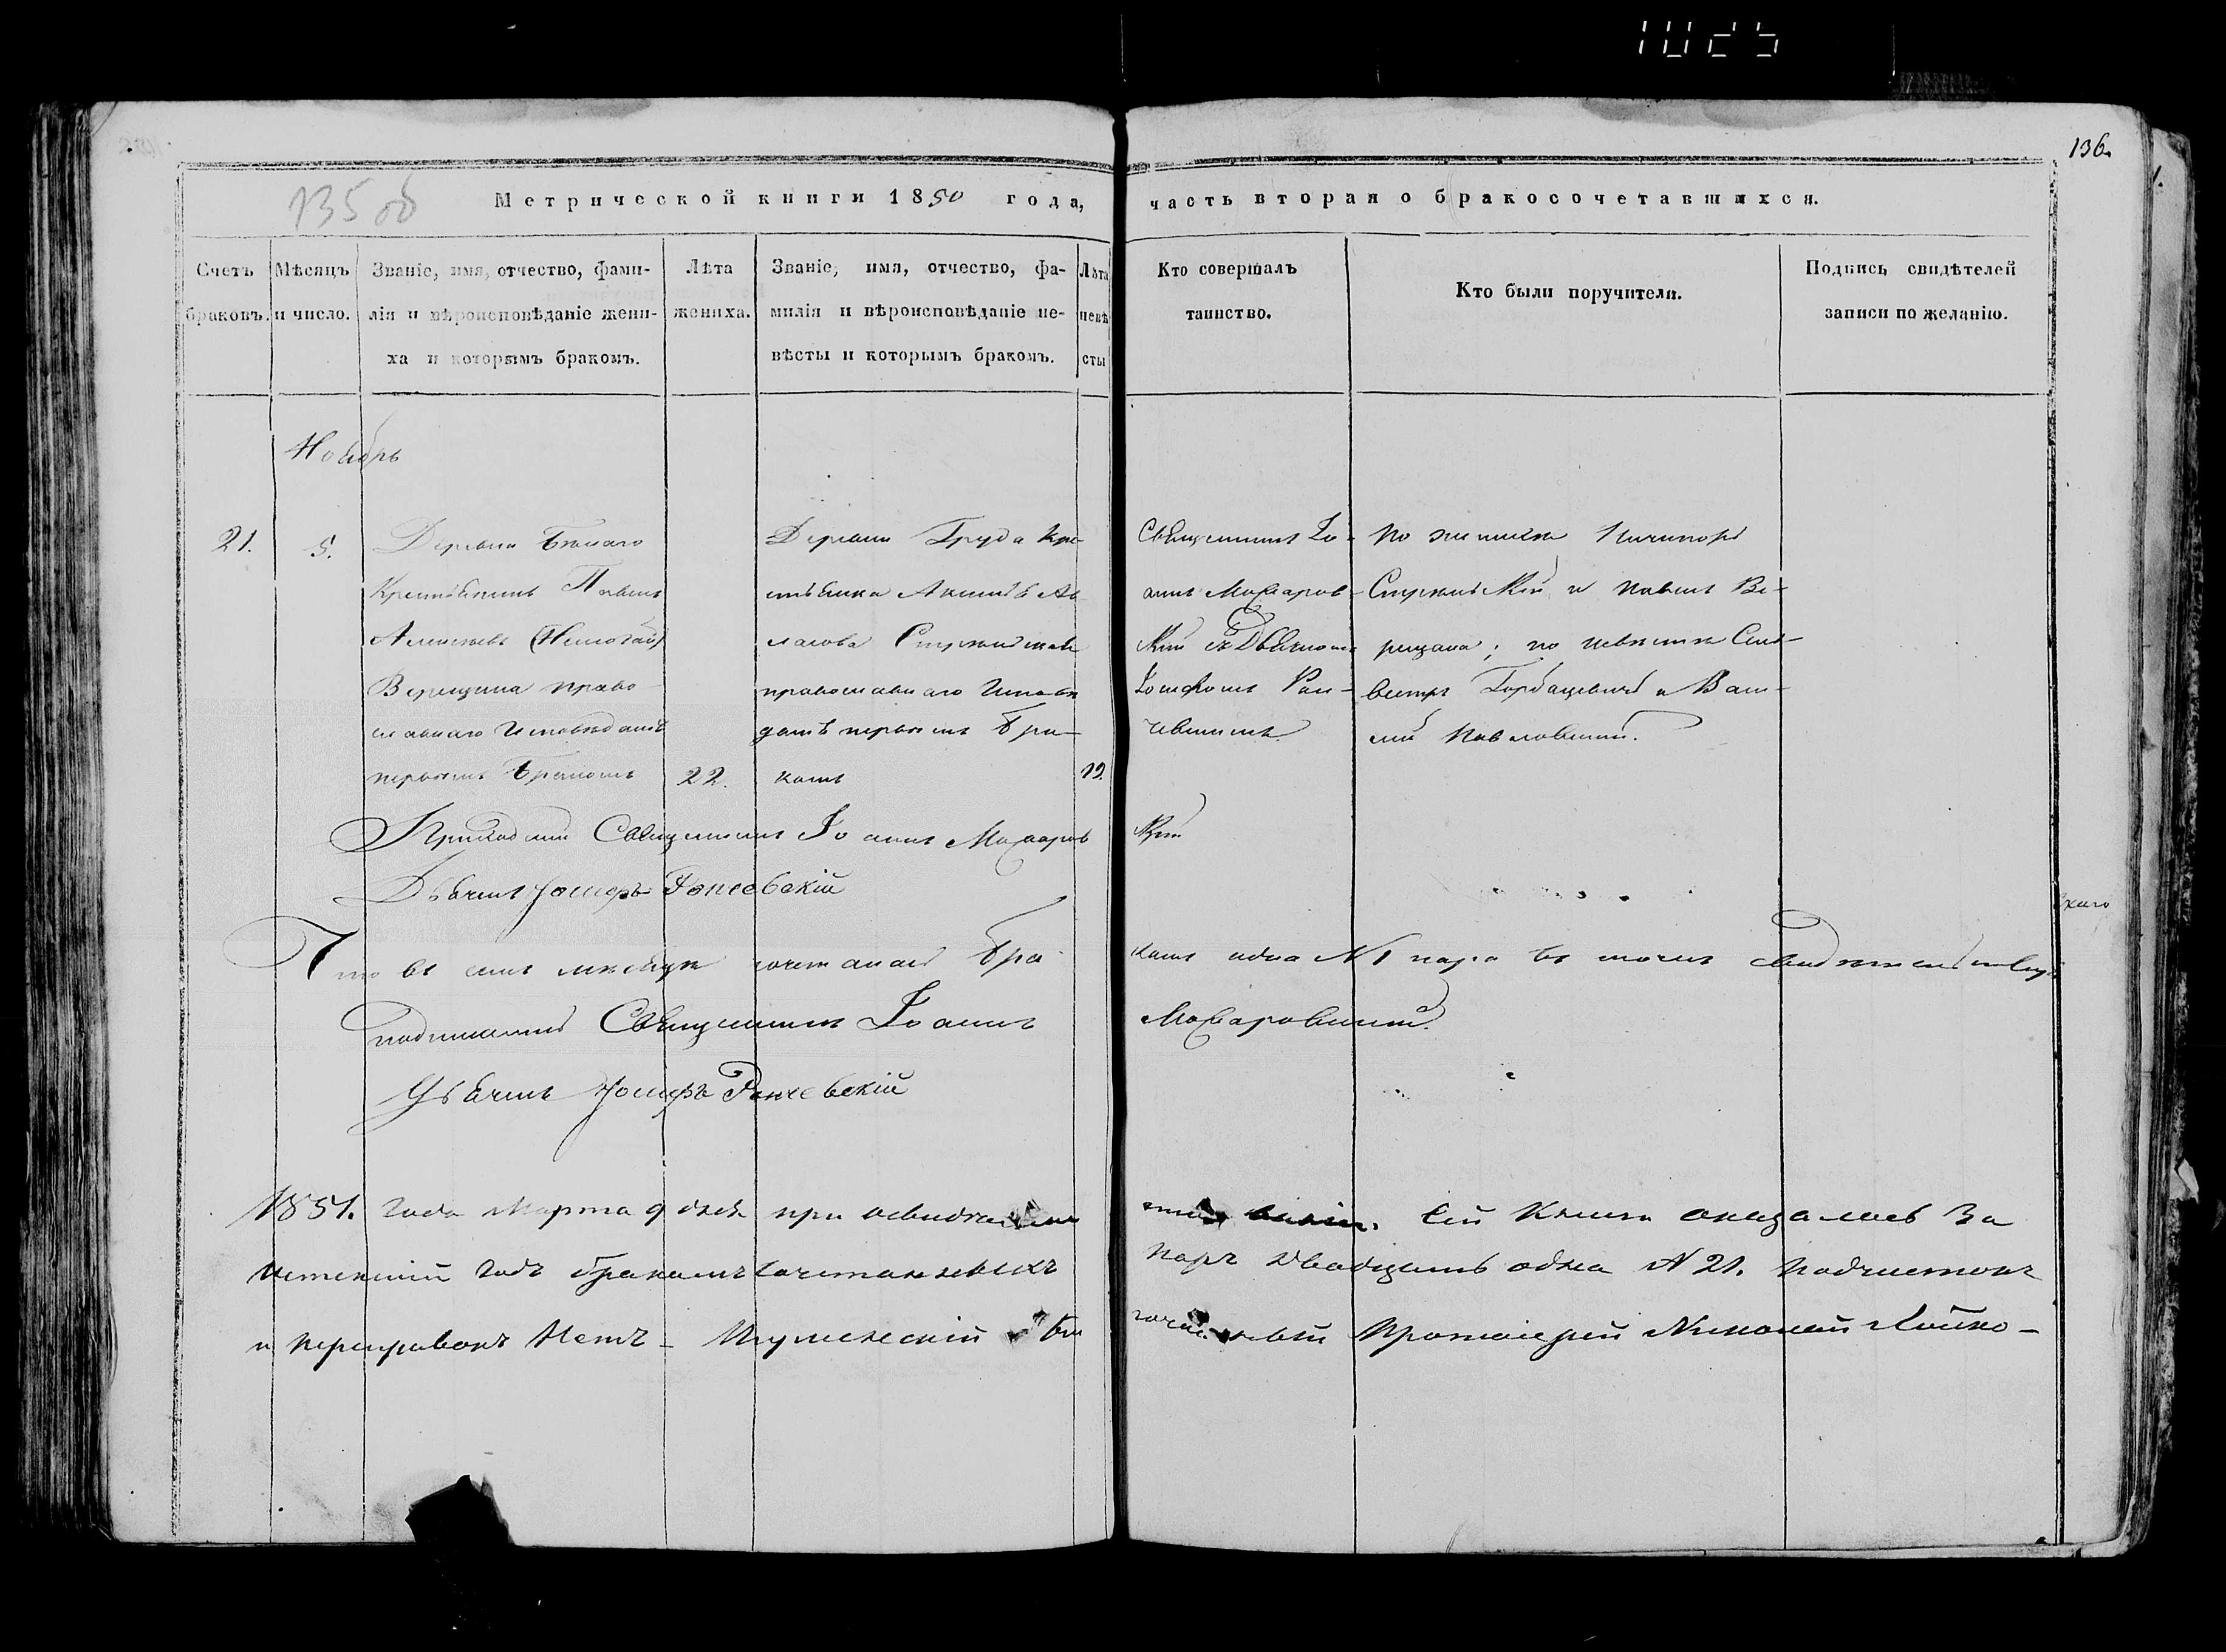 136.
135 об
Метрической книги 1850 года, часть вторая о бракосочетавшихся.
Счетъ браковъ.
Мѣсяцъ и число.
Званіе, имя, отчество, фами-
лія и вѣроисповѣданіе жени-
ха и которымъ бракомъ.
Лѣта
жениха.
Званіе, имя, отчество, фа-
милія и вѣроисповѣданіе не-
вѣсты и которымъ бракомъ.
Лѣта
невѣ
сты
Кто совершалъ
таинство.
Кто были поручители.
Подпись свидѣтелей
записи по желанію.
Ноябрь
21.
5.
Деревни
Крестьянинъ Павелъ
Алексѣевъ
Верещака право
славнаго Исповѣданія
первымъ бракомъ
22.
Деревни Груда Кре
стьянка
православнаго Исповѣ
данія первымъ бра-
комъ
19.
Священникъ Іо-
аннъ Макаров-
скій съ Дьячкомъ
Іосифомъ Ран-
чевскимъ
по женихѣ Никипоръ
и Павелъ Ве-
рещака; по невѣстѣ Сил-
вестръ Горбацевичъ и Васи-
лій Павловскій.
Приходскій Священникъ Іоаннъ Макаров скій
Дьячекъ Іосифъ Ранчевскій
Что въ семъ мѣсяцѣ сочетанa бра комъ одна №1 пара въ томъ свидѣтельствую
подписомъ Священникъ Іоаннъ Макаровскій.
Дьячекъ Іосифъ Ранчевскій
1851. года Марта 9 дня при Сей Книги оказалось За
истекшій годъ бракомъ сочетанныхъ паръ двадцать одна №21. подчистокъ
и переправокъ Нетъ - Протоіерей Николай